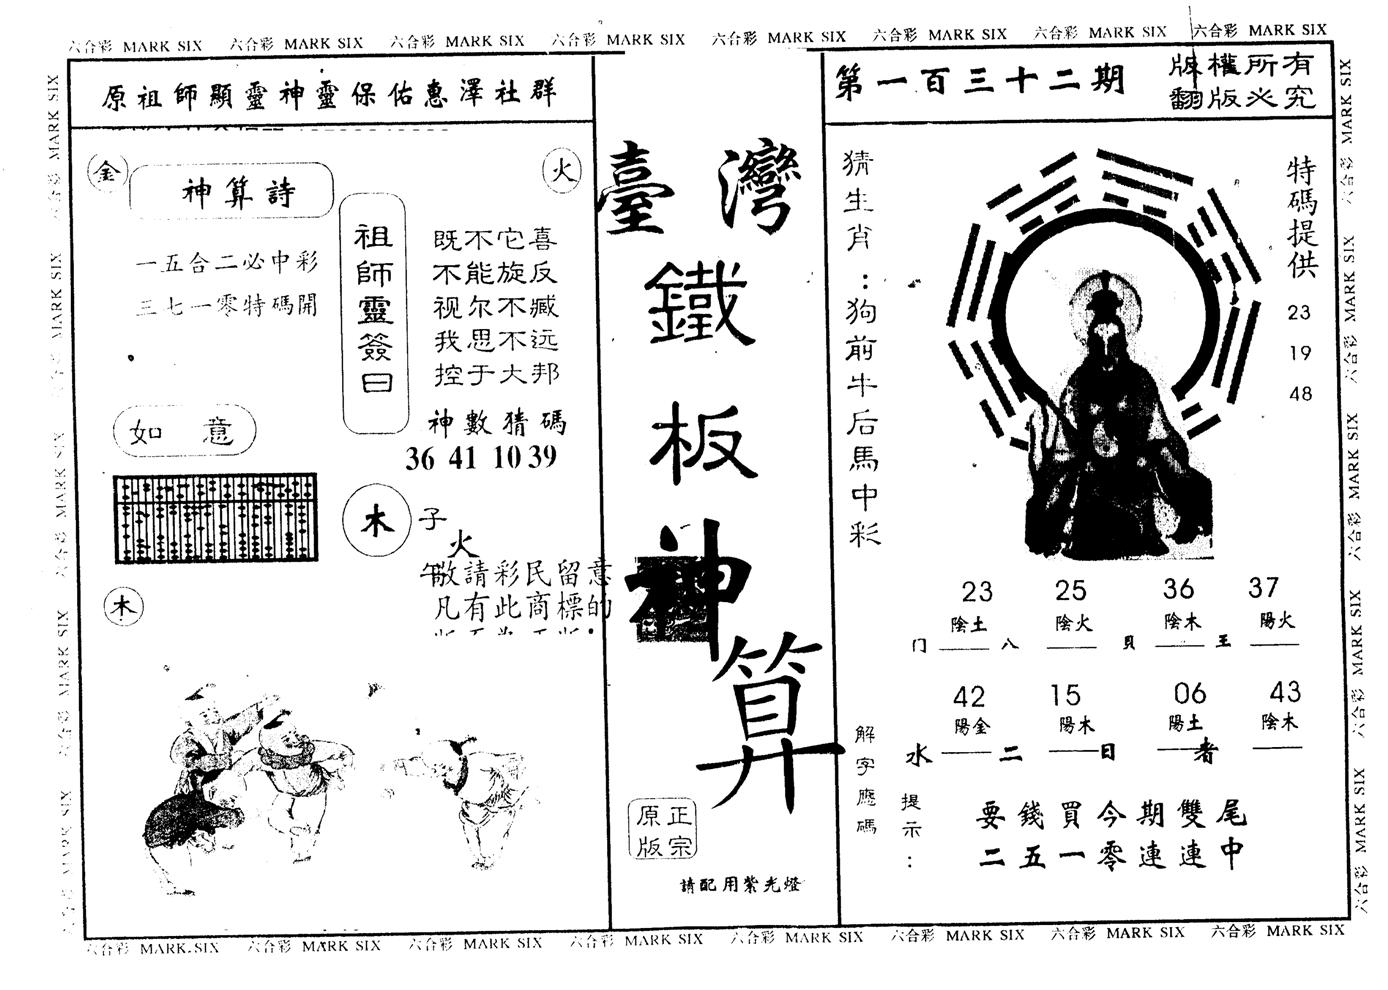 六合彩 MARK SIX 六合彩 MARK SIX 六合彩 MARK SIX 六合彩 MARK SIX 六合彩 MARK SIX 六合彩 MARK SIX 六合彩 MARK SIX 六合彩 MARK SIX
原祖師顯靈神靈保佑惠澤社群
金
火
神算詩
一五合二必中彩
三七一零特碼開
祖師靈簽曰
既不它喜
不能旋反
视尔不臧
我思不远
控于大邦
神數猜碼
36 41 10 39
如意
木
子
火
午
敬請彩民留意
凡有此商標的
木
臺灣
鐵
板
神
算
正宗
原版
請配用紫光燈
第一百三十二期
版權所有
翻版必究
猜生肖：狗前牛后馬中彩
特碼提供
23
19
48
23 25 36 37
陰土 陰火 陰木 陽火
门 八 貝 王
42 15 06 43
陽金 陽木 陽土 陰木
水 二 日 者
解字應碼
提示：
要錢買今期雙尾
二五一零連連中
六合彩 MARK SIX 六合彩 MARK SIX 六合彩 MARK SIX 六合彩 MARK SIX 六合彩 MARK SIX 六合彩 MARK SIX 六合彩 MARK SIX 六合彩 MARK SIX